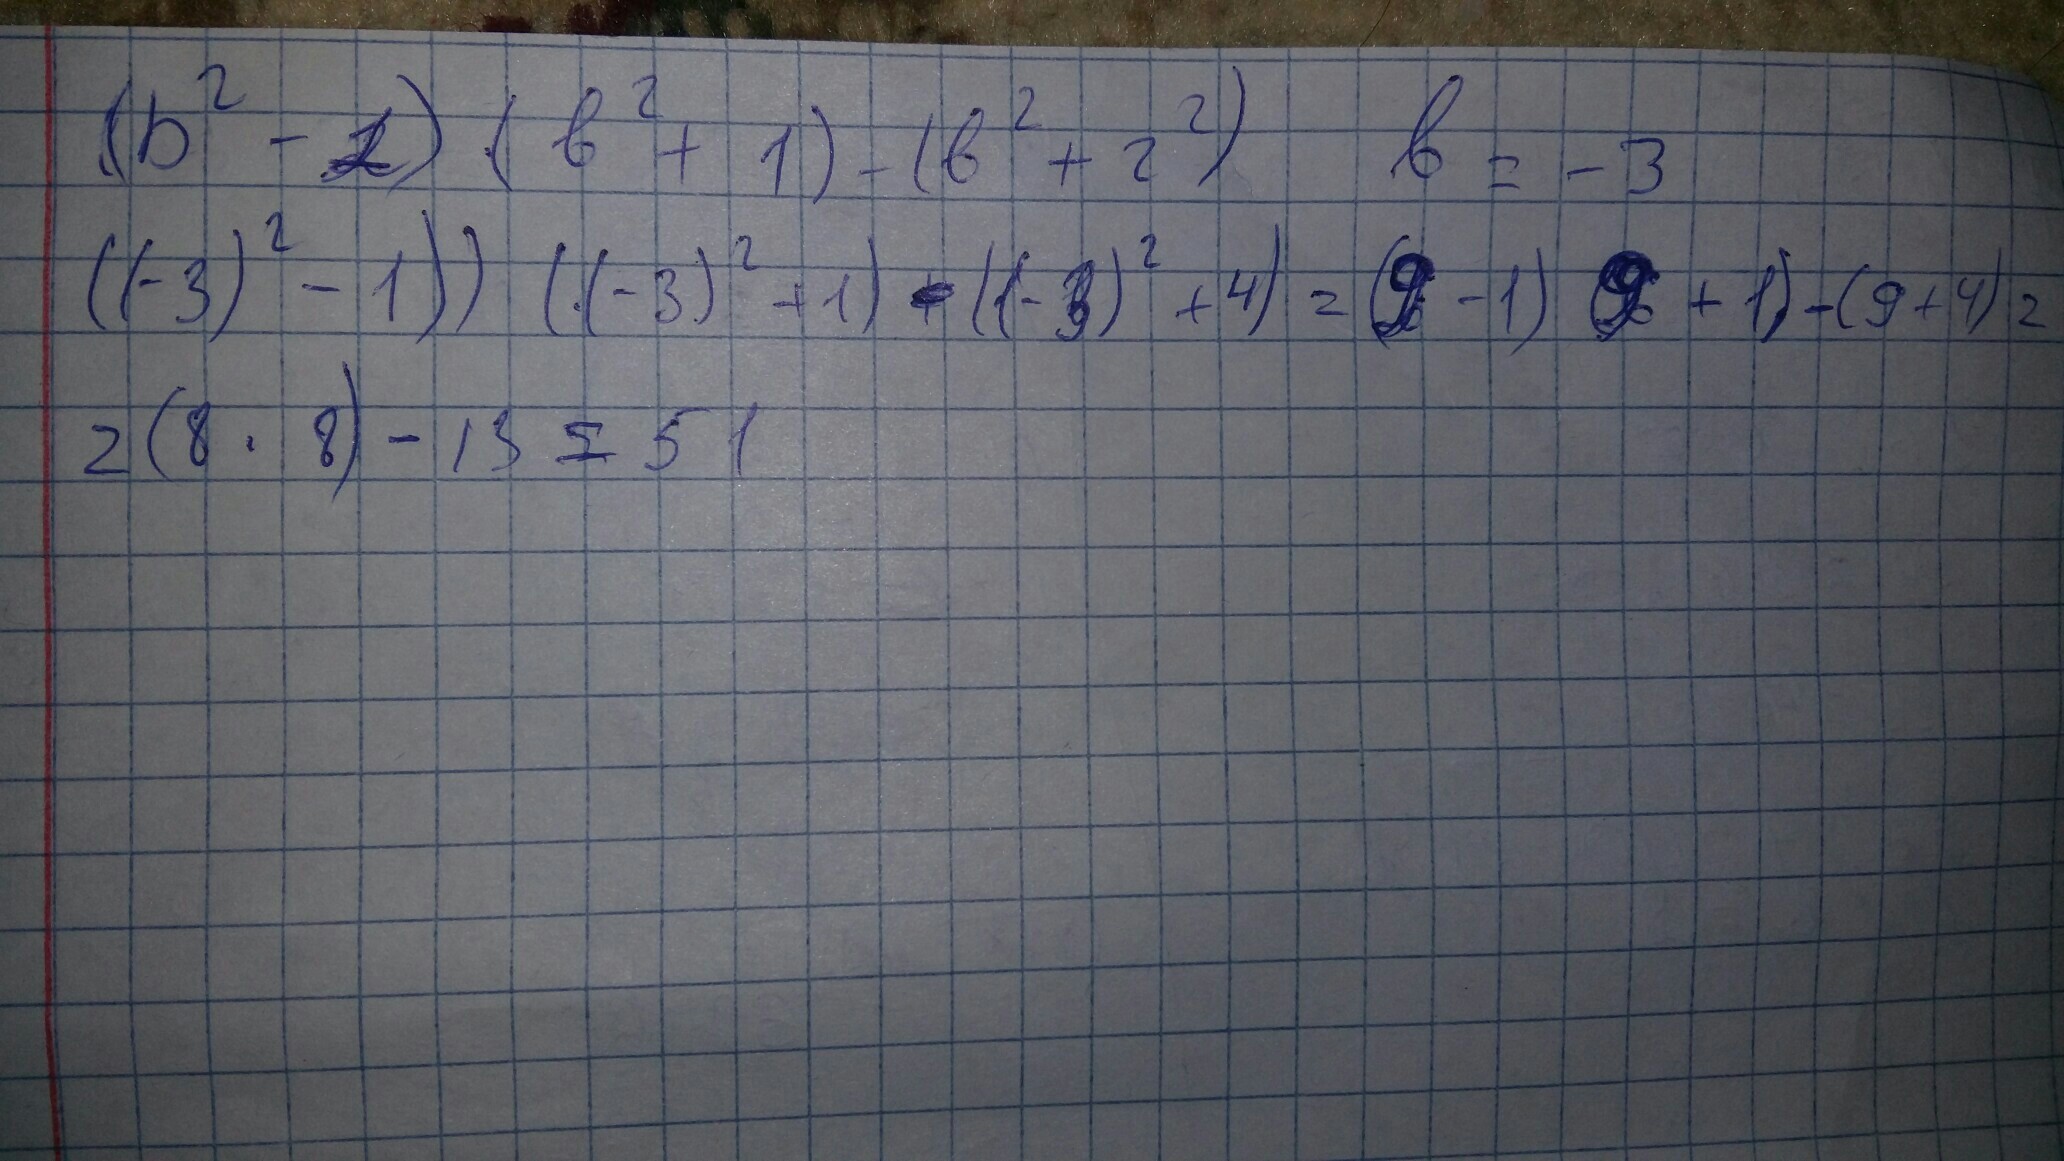 (b² - 1) (b² + 1) - (b² + 2²) b = - 3
((-3)² - 1)) ((-3)² + 1) - ((-3)² + 4) = (9 - 1) (9 + 1) - (9 + 4) =
= (8 · 8) - 13 = 51